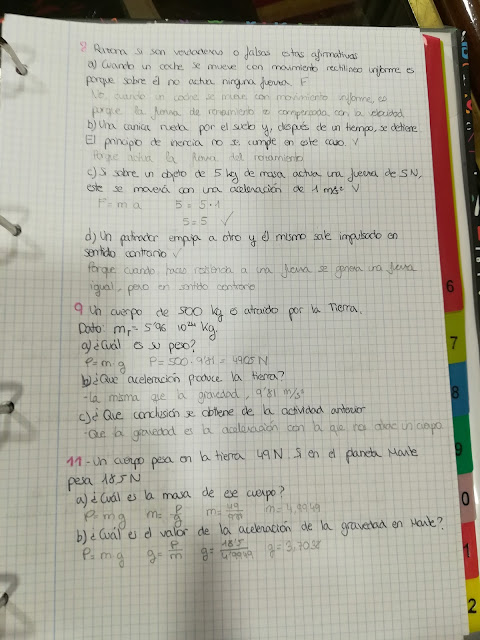 8 Razona si son verdaderas o falsas estas afirmativas
a) Cuando un coche se mueve con movimiento rectilineo informe es
porque sobre el no actua ninguna fuerza F
No, cuando un coche se mueve con movimiento informe, es
porque la fuerza de rozamiento es compensada con la velocidad
b) Una canica rueda por el suelo y, después de un tiempo, se detiene
El principio de inercia no se cumple en este caso. V
Porque actua la fuerza del rozamiento
c) Si sobre un objeto de 5 kg de masa actua una fuerza de 5N,
este se moverá con una aceleración de 1 m/s² V
F = m a 5 = 5 · 1
5 = 5 ✓
d) Un patinador empuja a otro y él mismo sale impulsado en
sentido contrario ✓
Porque cuando haces resistencia a una fuerza se genera una fuerza
igual, pero en sentido contrario
9 Un cuerpo de 500 kg es atraido por la Tierra.
Dato: mT = 5'96 10²⁴ kg.
a) ¿Cuál es su peso?
P = m · g P = 500 · 9'81 = 4905 N
b) ¿Que aceleración produce la tierra?
- La misma que la gravedad, 9'81 m/s²
c) ¿Que conclusión se obtiene de la actividad anterior
- Que la gravedad es la aceleración con la que nos atrae un cuerpo
11 - Un cuerpo pesa en la tierra 49N si en el planeta Marte
pesa 18'5 N
a) ¿Cuál es la masa de ese cuerpo?
P = m g m = P/g m = 49/9'81 m = 4,9949
b) ¿Cuál es el valor de la aceleración de la gravedad en Marte?
P = m · g g = P/m g = 18'5/4'9949 g = 3,7038
6
7
8
9
0
1
2